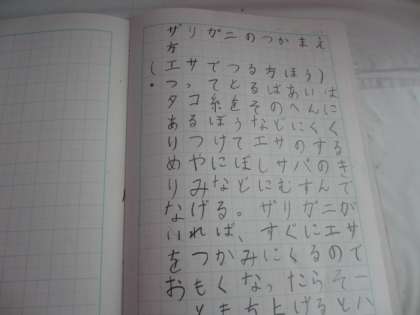 ザリガニのつかまえ
方
(エサでつる方ほう)
・つってとるばあいは
タコ糸をそのへんに
あるぼうなどにくく
りつけてエサのする
めやにぼしサバのき
りみなどにむすんで
なげる。ザリガニが
いれば、すぐにエサ
をつかみにくるので
おもくなったらそー
ともち上げるとハ